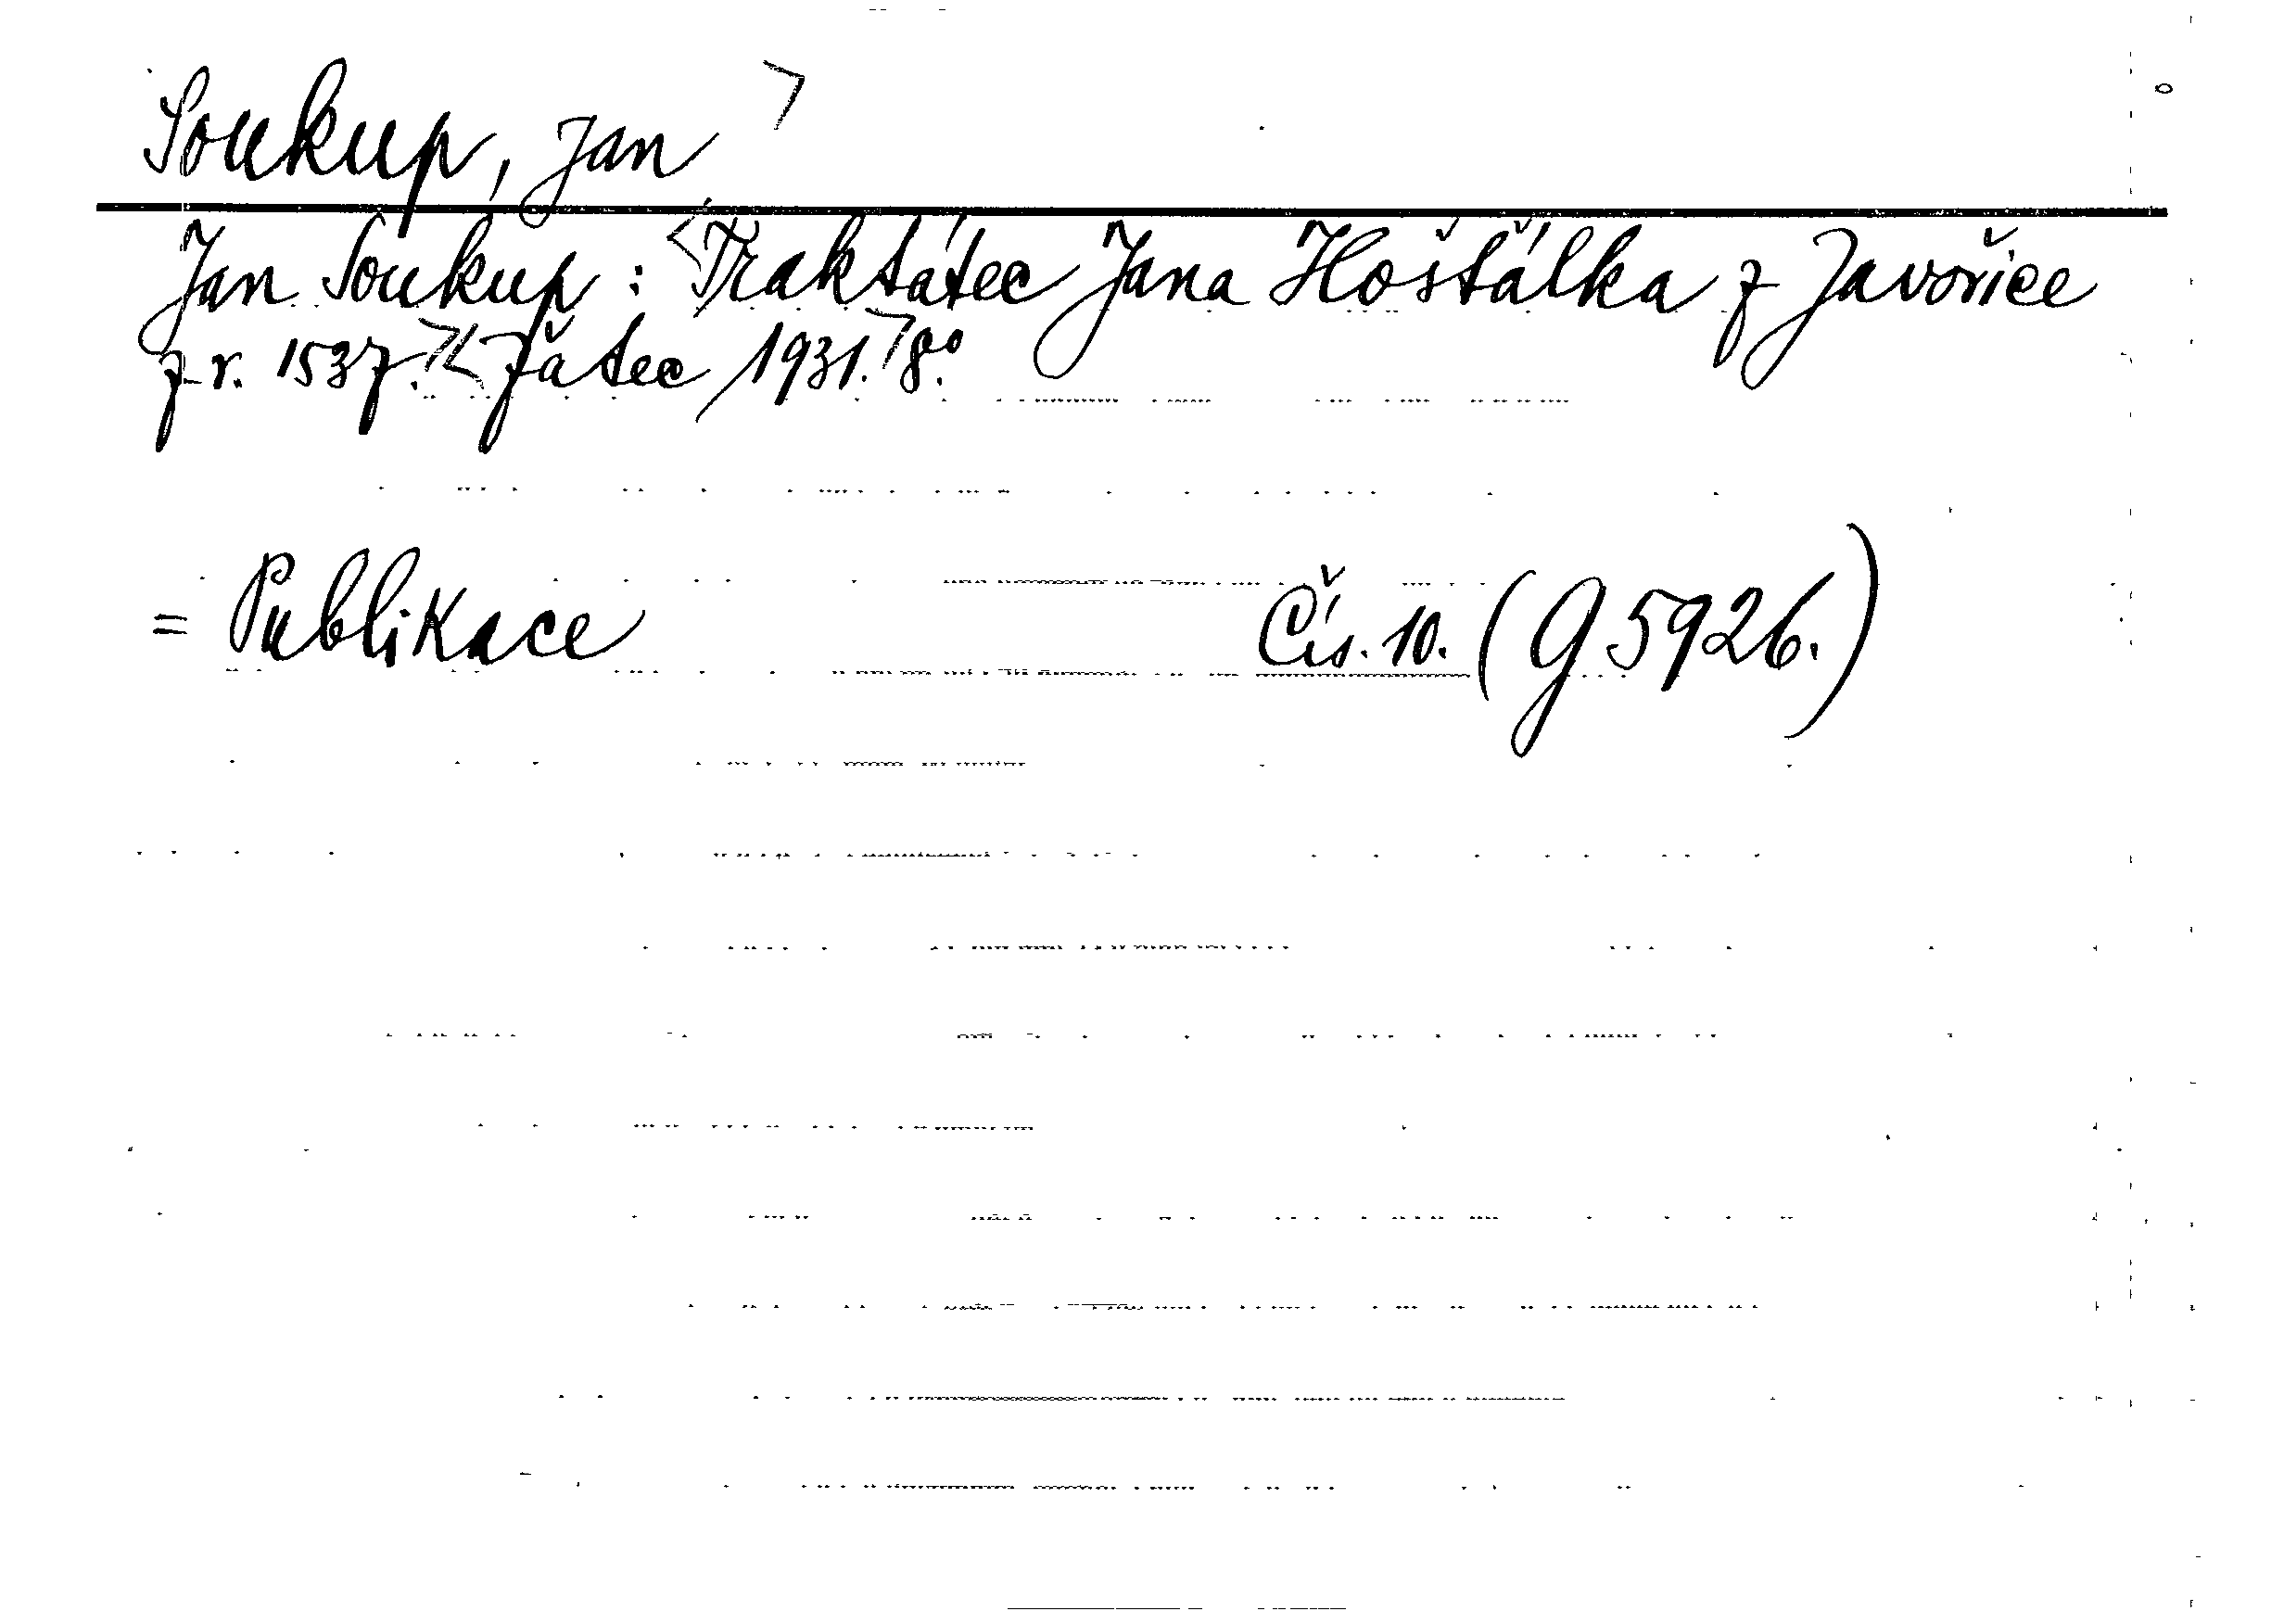 Soukup, Jan
Jan Soukup: Traktátec Jana Hošťálka z Javořice
z r. 1537. Žatec 1931. 8°.
= Publikace Čís. 10. (G 5926.)